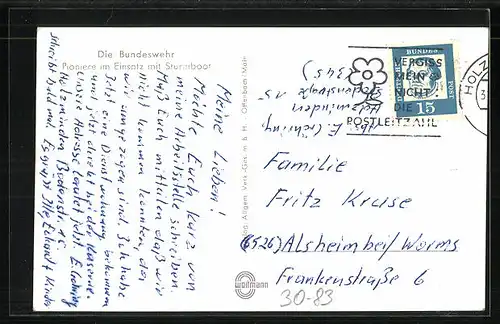 Die Bundeswehr
Pioniere im Einsatz mit Sturmboot
Meine Lieben!
Möchte Euch kurz von
meine Arbeitsstelle schreiben.
Muß Euch mitteilen daß wir
nicht kommen konnten, da
wir umgezogen sind. Ich habe
jetzt eine Dienstwohnung bekommen
und jetzt direkt bei der Kaserne.
Unsere Adresse lautet jetzt. E.
Holzminden Bodenstr. 15.
Schreibt bald mal. Es grüßt Illy, Eckardt Kinder
Verlag Allgem. Vers.-Ges. m.b.H. Offenbach/Main
Abs. E.
Holzminden
Bodenstraße 15
(345)
VERGISS
MEIN
NICHT
DIE
POSTLEITZAHL
DEUTSCHE
BUNDES
POST
15
HOLZ
Familie
Fritz Kruse
(6526) Alsheim bei/Worms
Frankenstraße 6
30-83